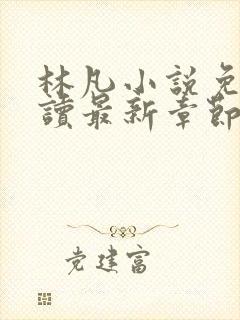 林凡小説免
讀最新章節
党建富